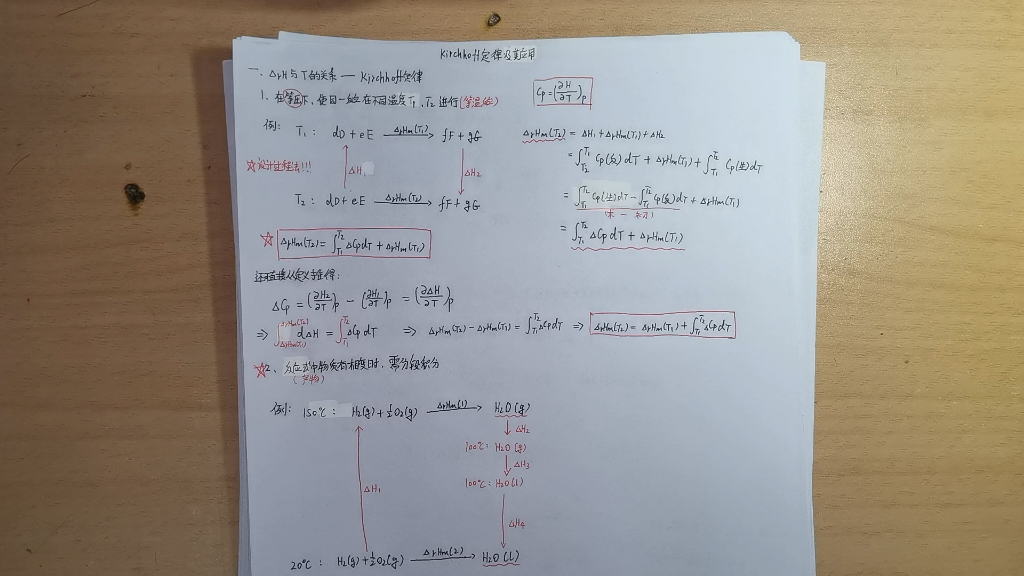 Kirchhoff定律及其应用
一、ΔrH与T的关系 — Kirchhoff定律
1. 在等压下，使同一反应在不同温度T₁、T₂进行(等温反应)
Cp=(∂H/∂T)p
例： T₁： dD+eE —ΔrHm(T₁)→ fF+gG
ΔH₁ ΔH₂
☆设计过程法!!!
T₂： dD+eE —ΔrHm(T₂)→ fF+gG
☆ ΔrHm(T₂)=∫_{T₁}^{T₂} ΔCp dT + ΔrHm(T₁)
ΔrHm(T₂) = ΔH₁+ΔrHm(T₁)+ΔH₂
=∫_{T₂}^{T₁} Cp(反)dT + ΔrHm(T₁) + ∫_{T₁}^{T₂} Cp(生)dT
=∫_{T₁}^{T₂} Cp(生)dT − ∫_{T₁}^{T₂} Cp(反)dT + ΔrHm(T₁)
(末 − 初)
=∫_{T₁}^{T₂} ΔCp dT + ΔrHm(T₁)
从定义推得：
ΔCp = (∂H₂/∂T)p − (∂H₁/∂T)p = (∂ΔH/∂T)p
⇒ ∫_{ΔrHm(T₁)}^{ΔrHm(T₂)} dΔH = ∫_{T₁}^{T₂} ΔCp dT ⇒ ΔrHm(T₂) − ΔrHm(T₁) = ∫_{T₁}^{T₂} ΔCp dT ⇒ ΔrHm(T₂) = ΔrHm(T₁) + ∫_{T₁}^{T₂} ΔCp dT
☆2、反应式中物质有相变时，需分段积分
(产物)
例： 150℃： H₂(g)+½O₂(g) —ΔrHm(1)→ H₂O(g)
ΔH₂
100℃：H₂O(g)
ΔH₃
100℃：H₂O(l)
ΔH₁ ΔH₄
20℃： H₂(g)+½O₂(g) —ΔrHm(2)→ H₂O(l)